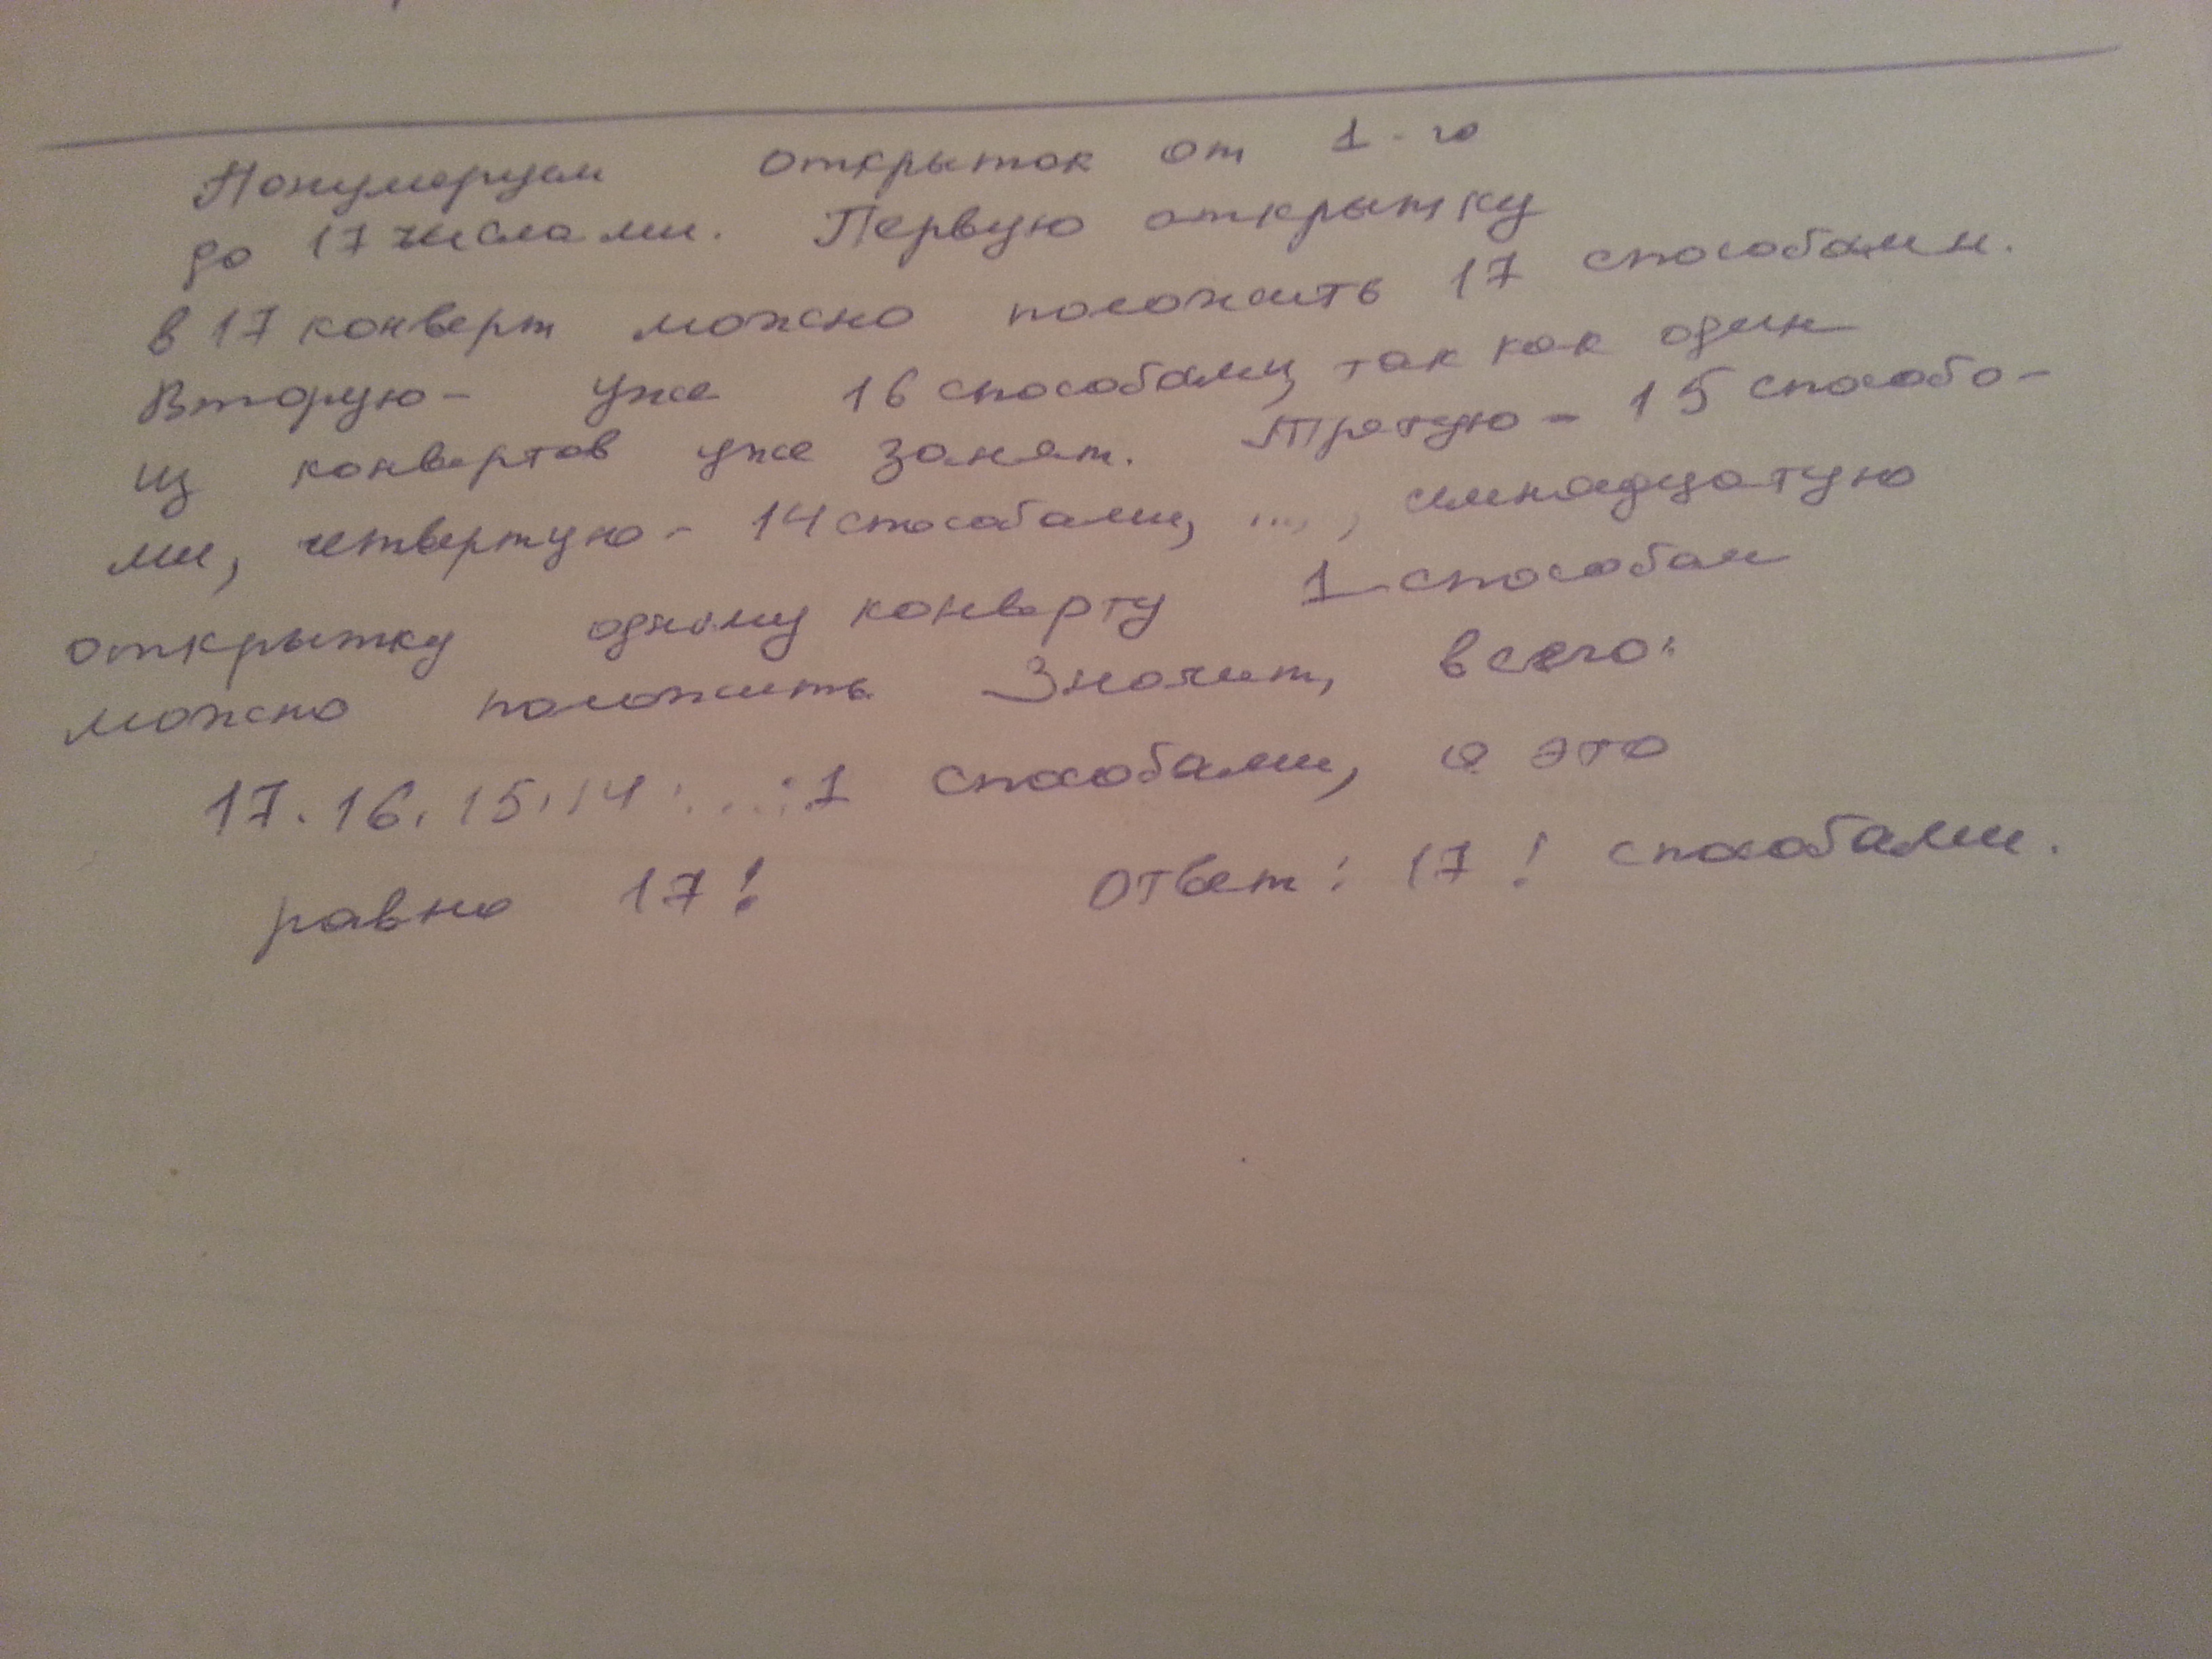 Понумеруем открыток от 1-го
до 17 числами. Первую открытку
в 17 конверт можно положить 17 способами.
Вторую - уже 16 способами, так как один
из конвертов уже занят. Третую - 15 способа-
ми, четвертую - 14 способами, ..., семнадцатую
открытку одному конверту 1 способам
можно положить Значит, всего:
17.16.15.14.....1 способами, а это
равно 17! Ответ: 17! способами.